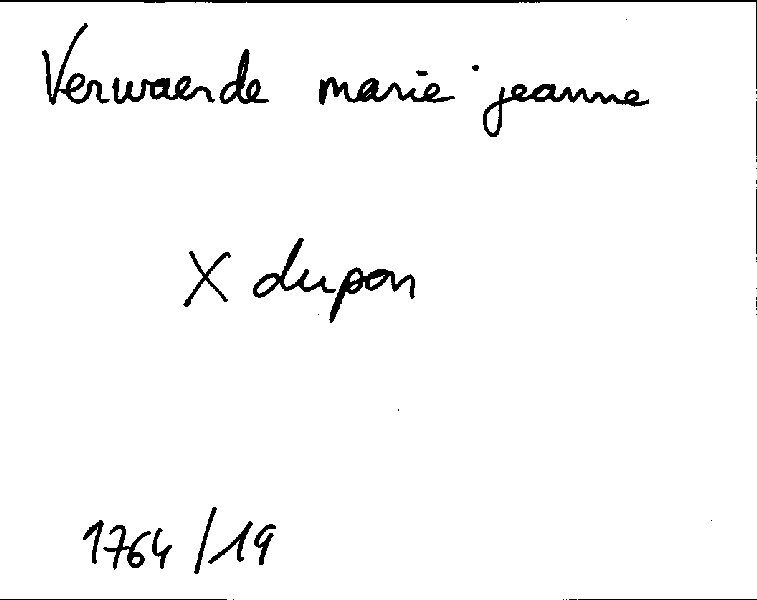 Verwaerde marie jeanne
X dupon
1764/19